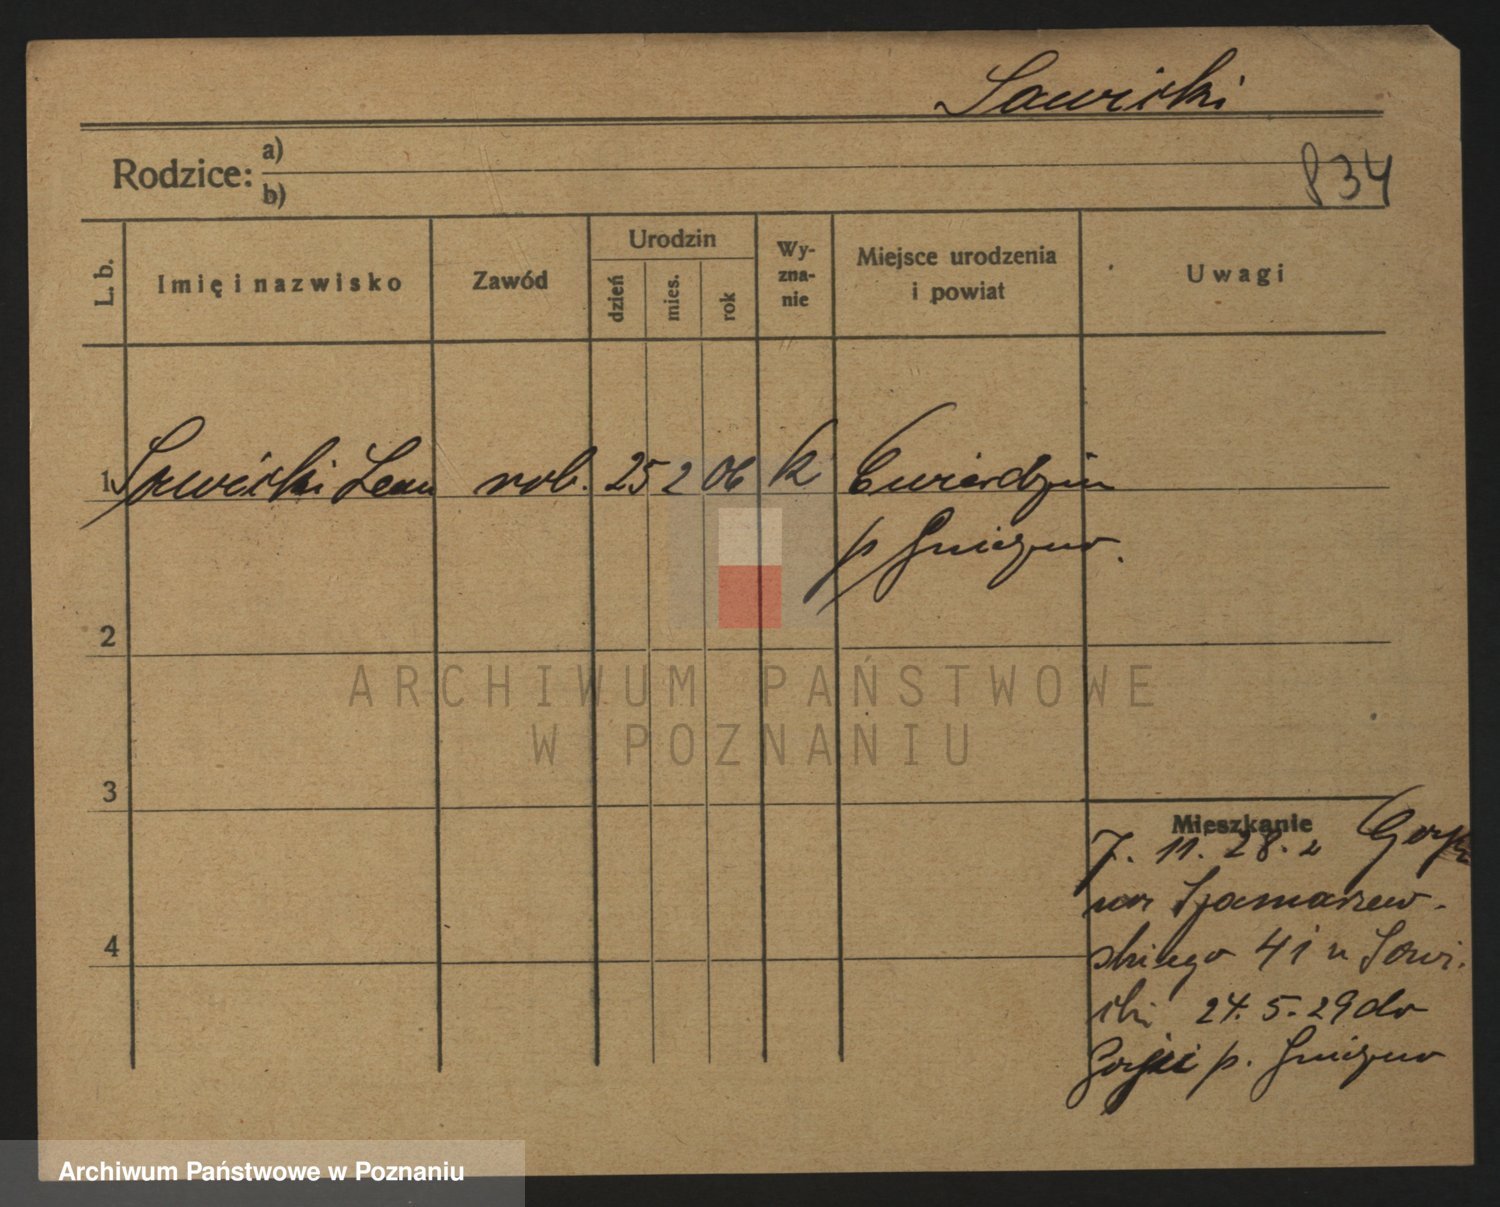 Sawicki
Rodzice: a)
b)
834
L. b.
Imię i nazwisko
Zawód
Urodzin
dzień
mies.
rok
Wy-
zna-
nie
Miejsce urodzenia
i powiat
Uwagi
1 Sawicki Leon rob. 25 2 06 k Ćwierdzin
p Gniezno.
2
ARCHIWUM PAŃSTWOWE
W POZNANIU
3
Mieszkanie
7. 11. 28. z
Szamarzew-
skiego 41 u Sawi-
cki 24. 5. 29 do
p. Gniezno
4
Archiwum Państwowe w Poznaniu